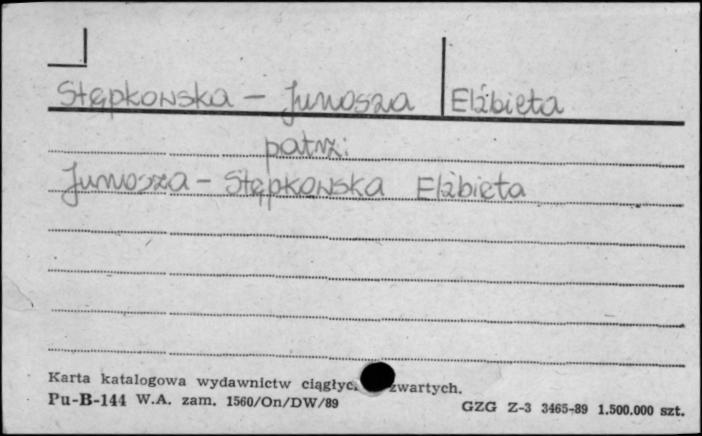 Stępkowska - Junosza Elżbieta
patrz:
Junosza - Stępkowska Elżbieta
Karta katalogowa wydawnictw zwartych.
Pu-B-144 W.A. zam. 1560/On/DW/89
GZG Z-3 3465-89 1.500.000 szt.